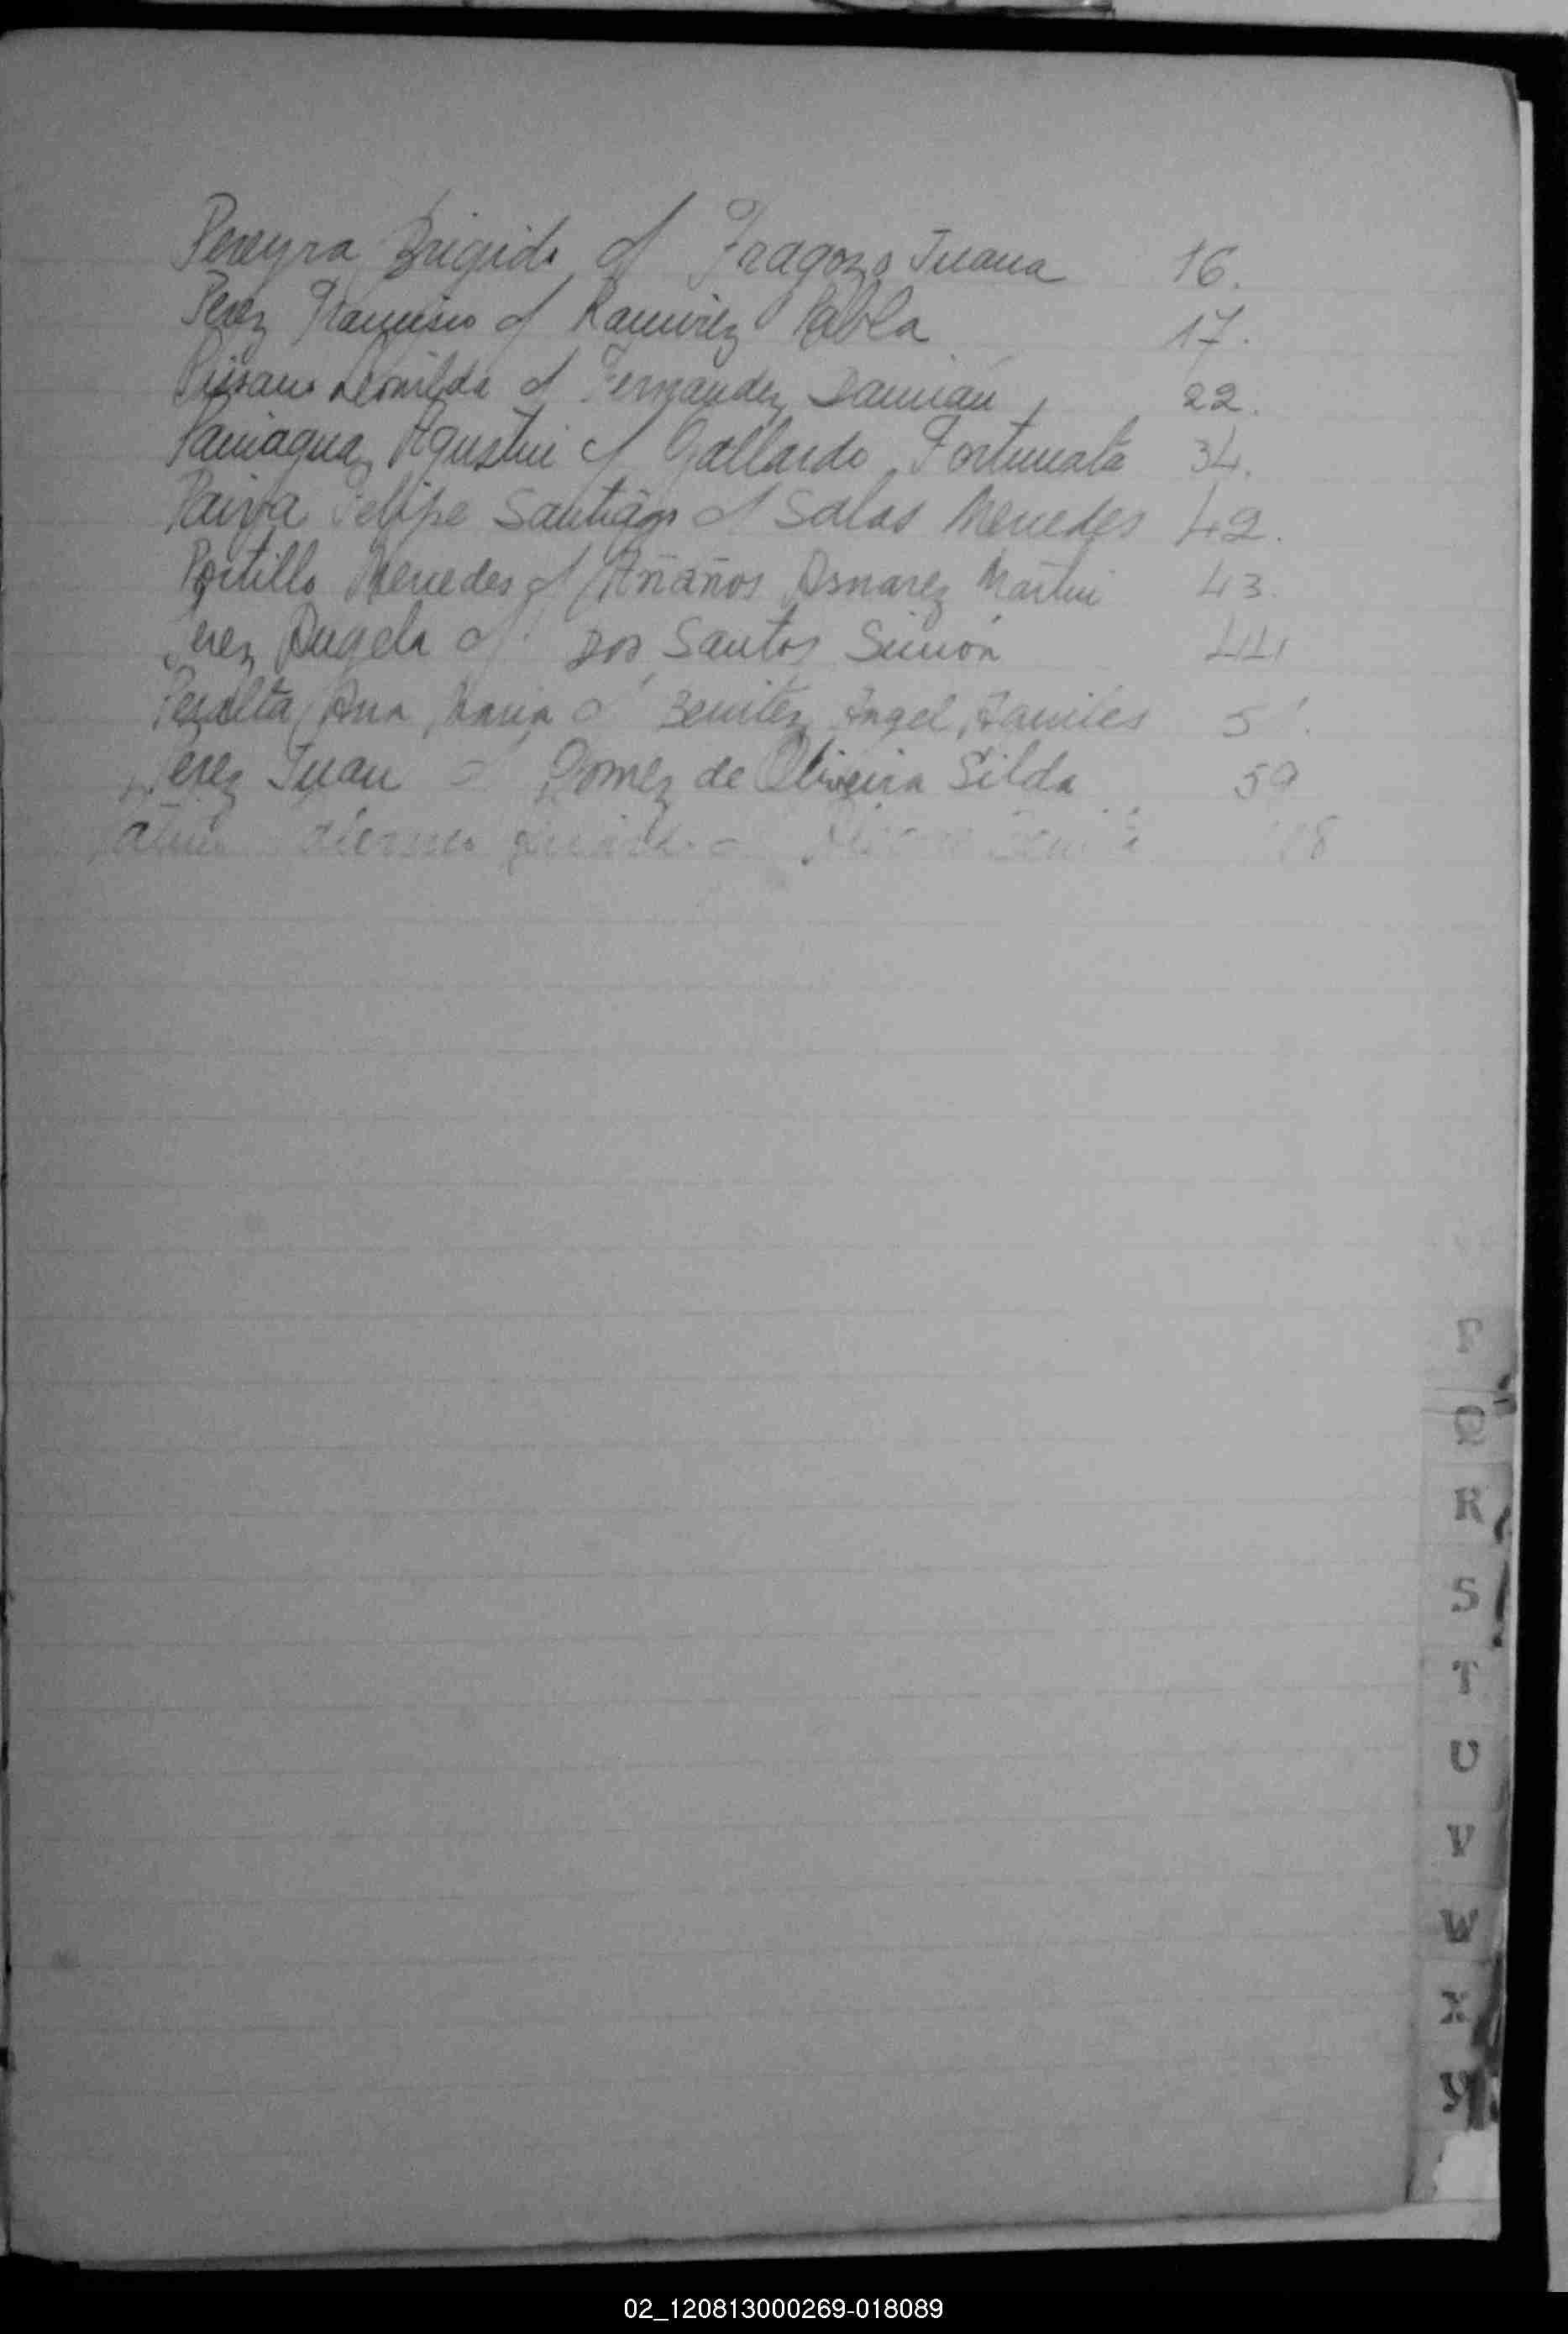 Pereyra Brigido c/ Fragozo Juana 16.
Perez Francisco c/ Ramirez Pabla 17.
Leonilda c/ Fernandez Damián 22.
Paniagua Agustin c/ Gallardo Fortunata 34.
Paiva Felipe Santiago c/ Salas Mercedes 42.
Portillo Mercedes c/ Añaños Asnarez Martin 43.
Perez Angela c/ Dos Santos Simón 44
Peralta Ana Maria c/ Benitez Angel Ramires
Perez Juan c/ Gomez de Oliveira Silda 59
P
Q
R
S
T
U
V
W
X
Y
02_120813000269-018089